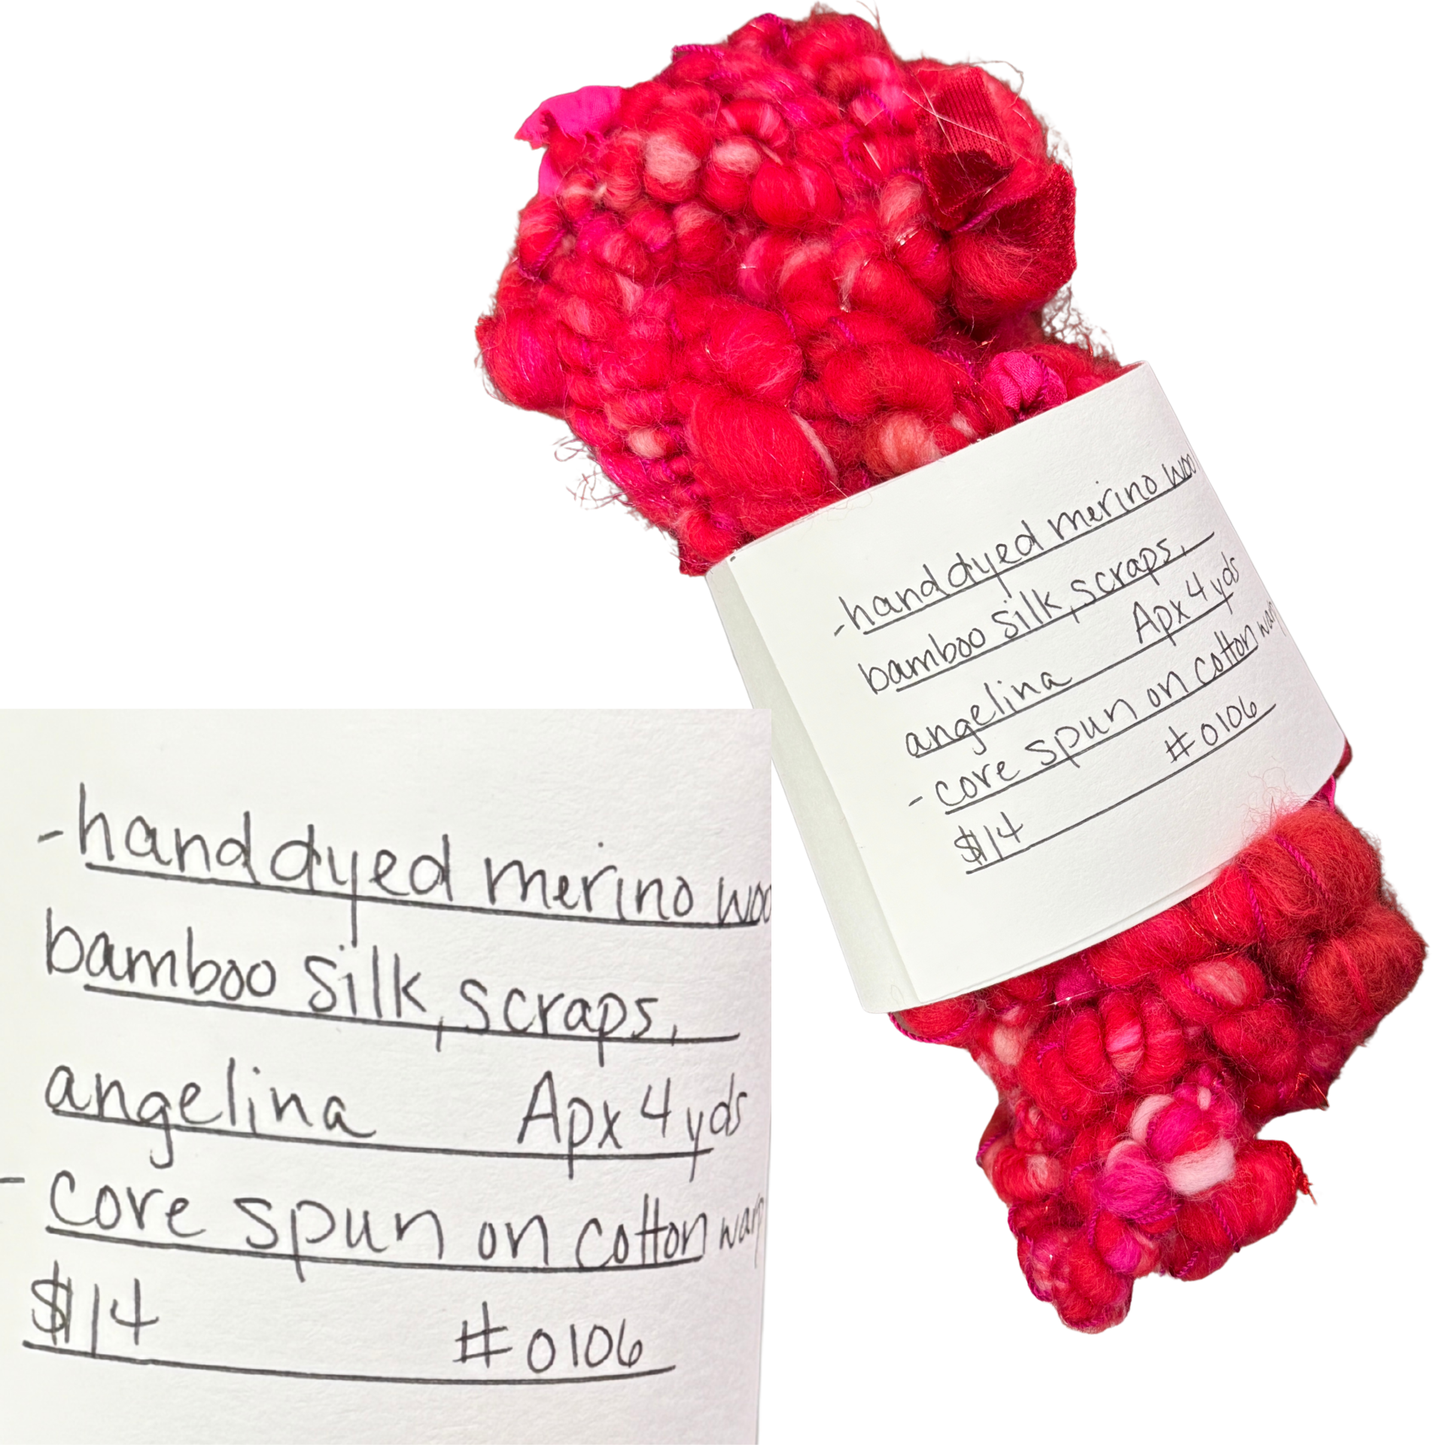 - hand dyed merino woo
bamboo silk, scraps,
angelina Apx 4 yds
- core spun on cotton warp
$14 #0106
- hand dyed merino woo
bamboo silk, scraps,
angelina Apx 4 yds
- core spun on cotton warp
$14 #0106